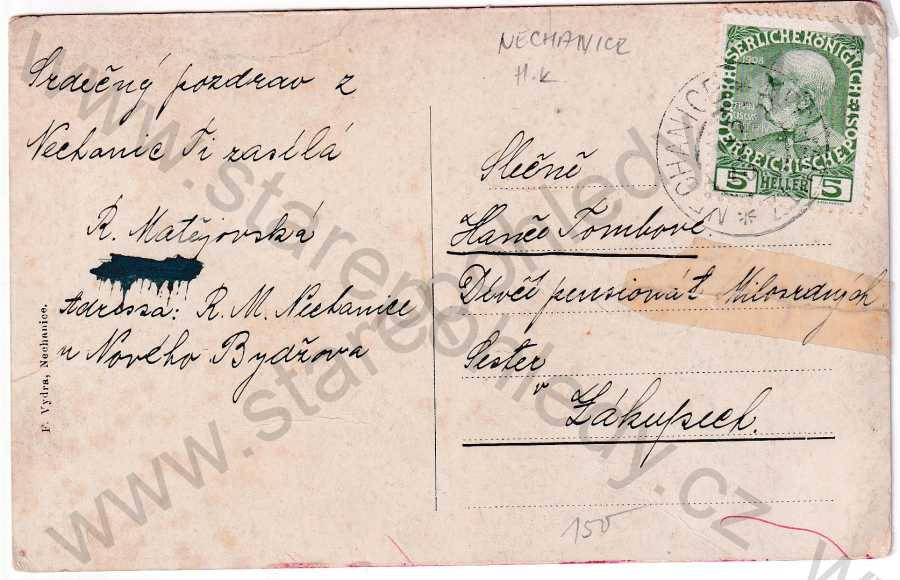 NECHANICE
H.K
Srdečný pozdrav z
Nechanic Ti zasílá
R. Matějovská
Adressa: R. M. Nechanice
u Nového Bydžova
F. Vydra, Nechanice.
Slečně
Hanče Tombové
Dívčí pensionát Milosrdných
Sester
v
Zákupech.
150
KAISERLICHE KÖNIGLICHE
ÖSTERREICHISCHE POST
1908
5 HELLER 5
NECHANICE
www.starepohledy.cz